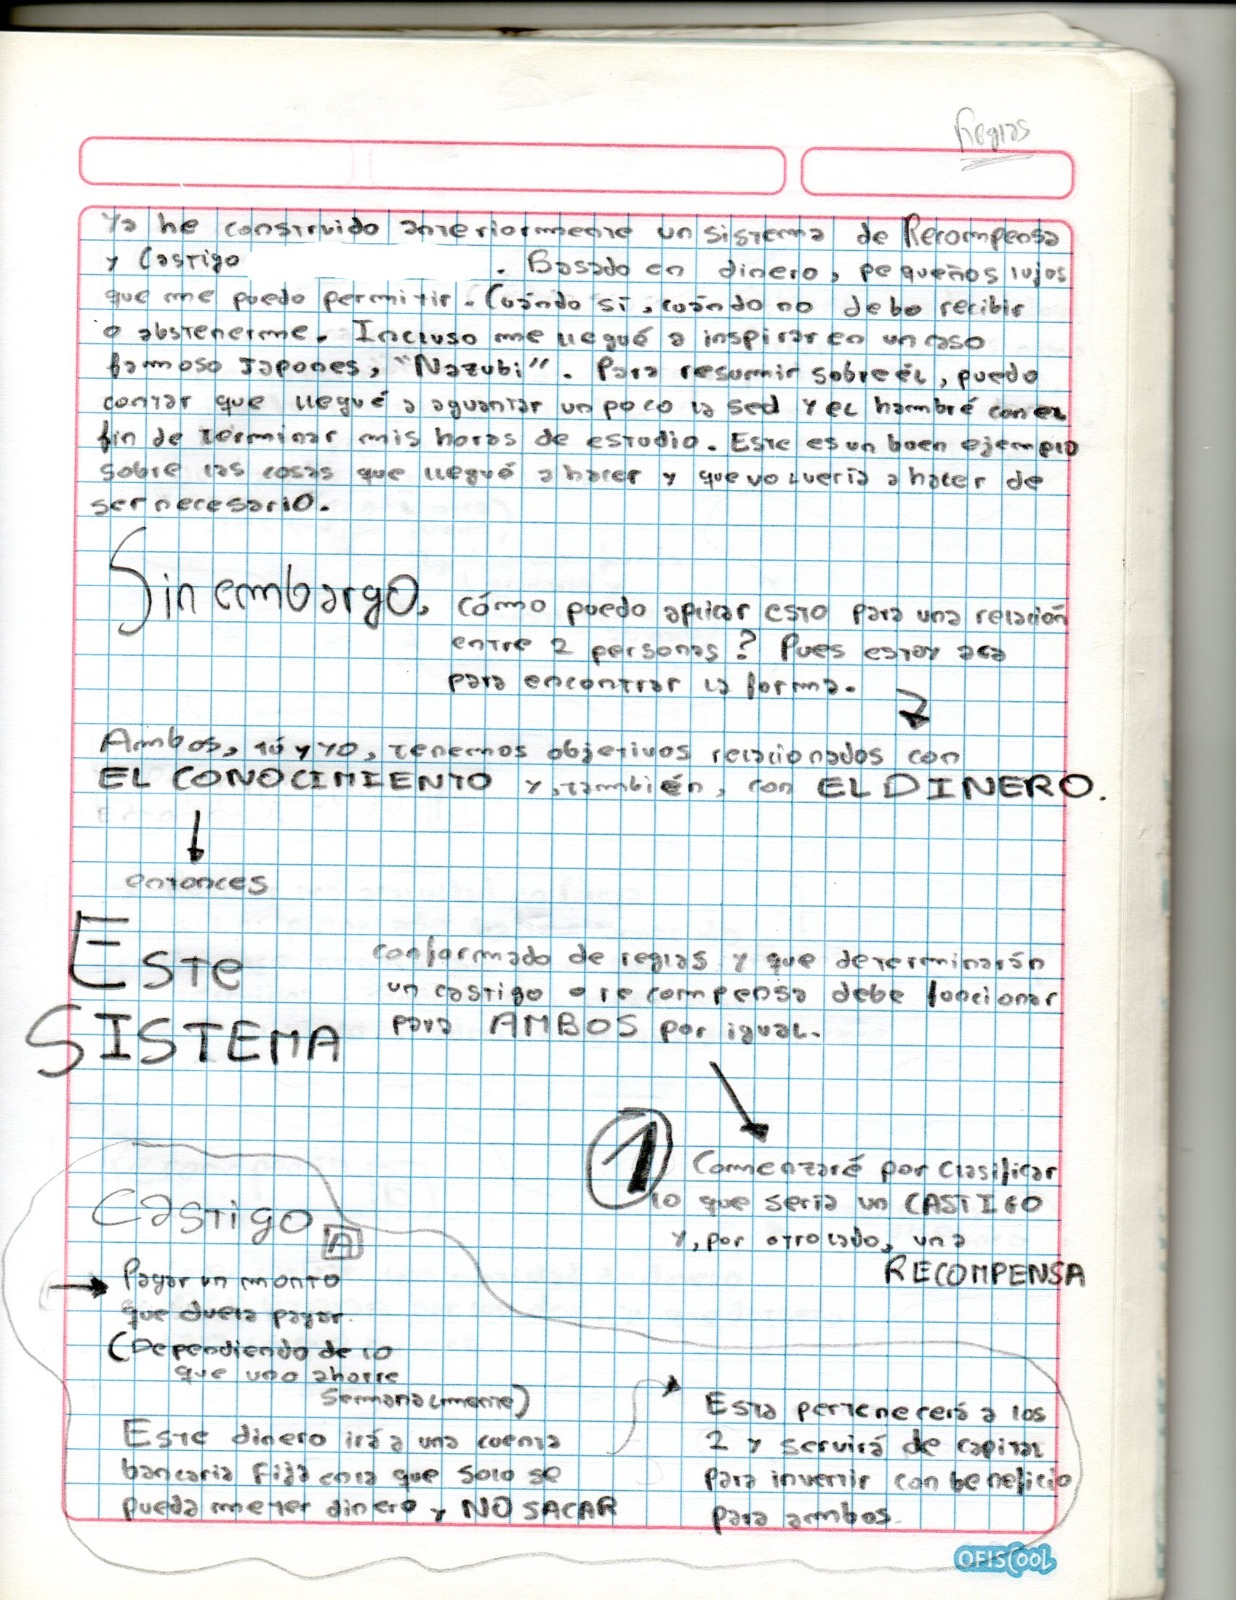 Reglas
Ya he construido anteriormente un sistema de Recompensa
y Castigo . Basado en dinero, pequeños lujos
que me puedo permitir. Cuándo sí, cuándo no debo recibir
o abstenerme. Incluso me llegué a inspirar en un caso
famoso Japones, "Nazubi". Para resumir sobre él, puedo
contar que llegué a aguantar un poco la sed y el hambré con el
fin de terminar mis horas de estudio. Este es un buen ejemplo
sobre las cosas que llegué a hacer y que volvería a hacer de
ser necesario.
Sin embargo, cómo puedo aplicar esto para una relación
entre 2 personas? Pues estoy acá
para encontrar la forma.
Ambos, tú y yo, tenemos objetivos relacionados con
EL CONOCIMIENTO y, también, con EL DINERO.
entonces
ESTE
SISTEMA
conformado de reglas y que determinarán
un castigo o recompensa debe funcionar
para AMBOS por igual.
1
Comenzaré por clasificar
lo que sería un CASTIGO
y, por otro lado, una
RECOMPENSA
CASTIGO
Pagar un monto
que duela pagar.
(Dependiendo de lo
que uno ahorre
semanalmente)
Este dinero irá a una cuenta
bancaria fija en la que solo se
pueda meter dinero y NO SACAR
Esta pertenecerá a los
2 y servirá de capital
para invertir con beneficio
para ambos.
OFISCOOL